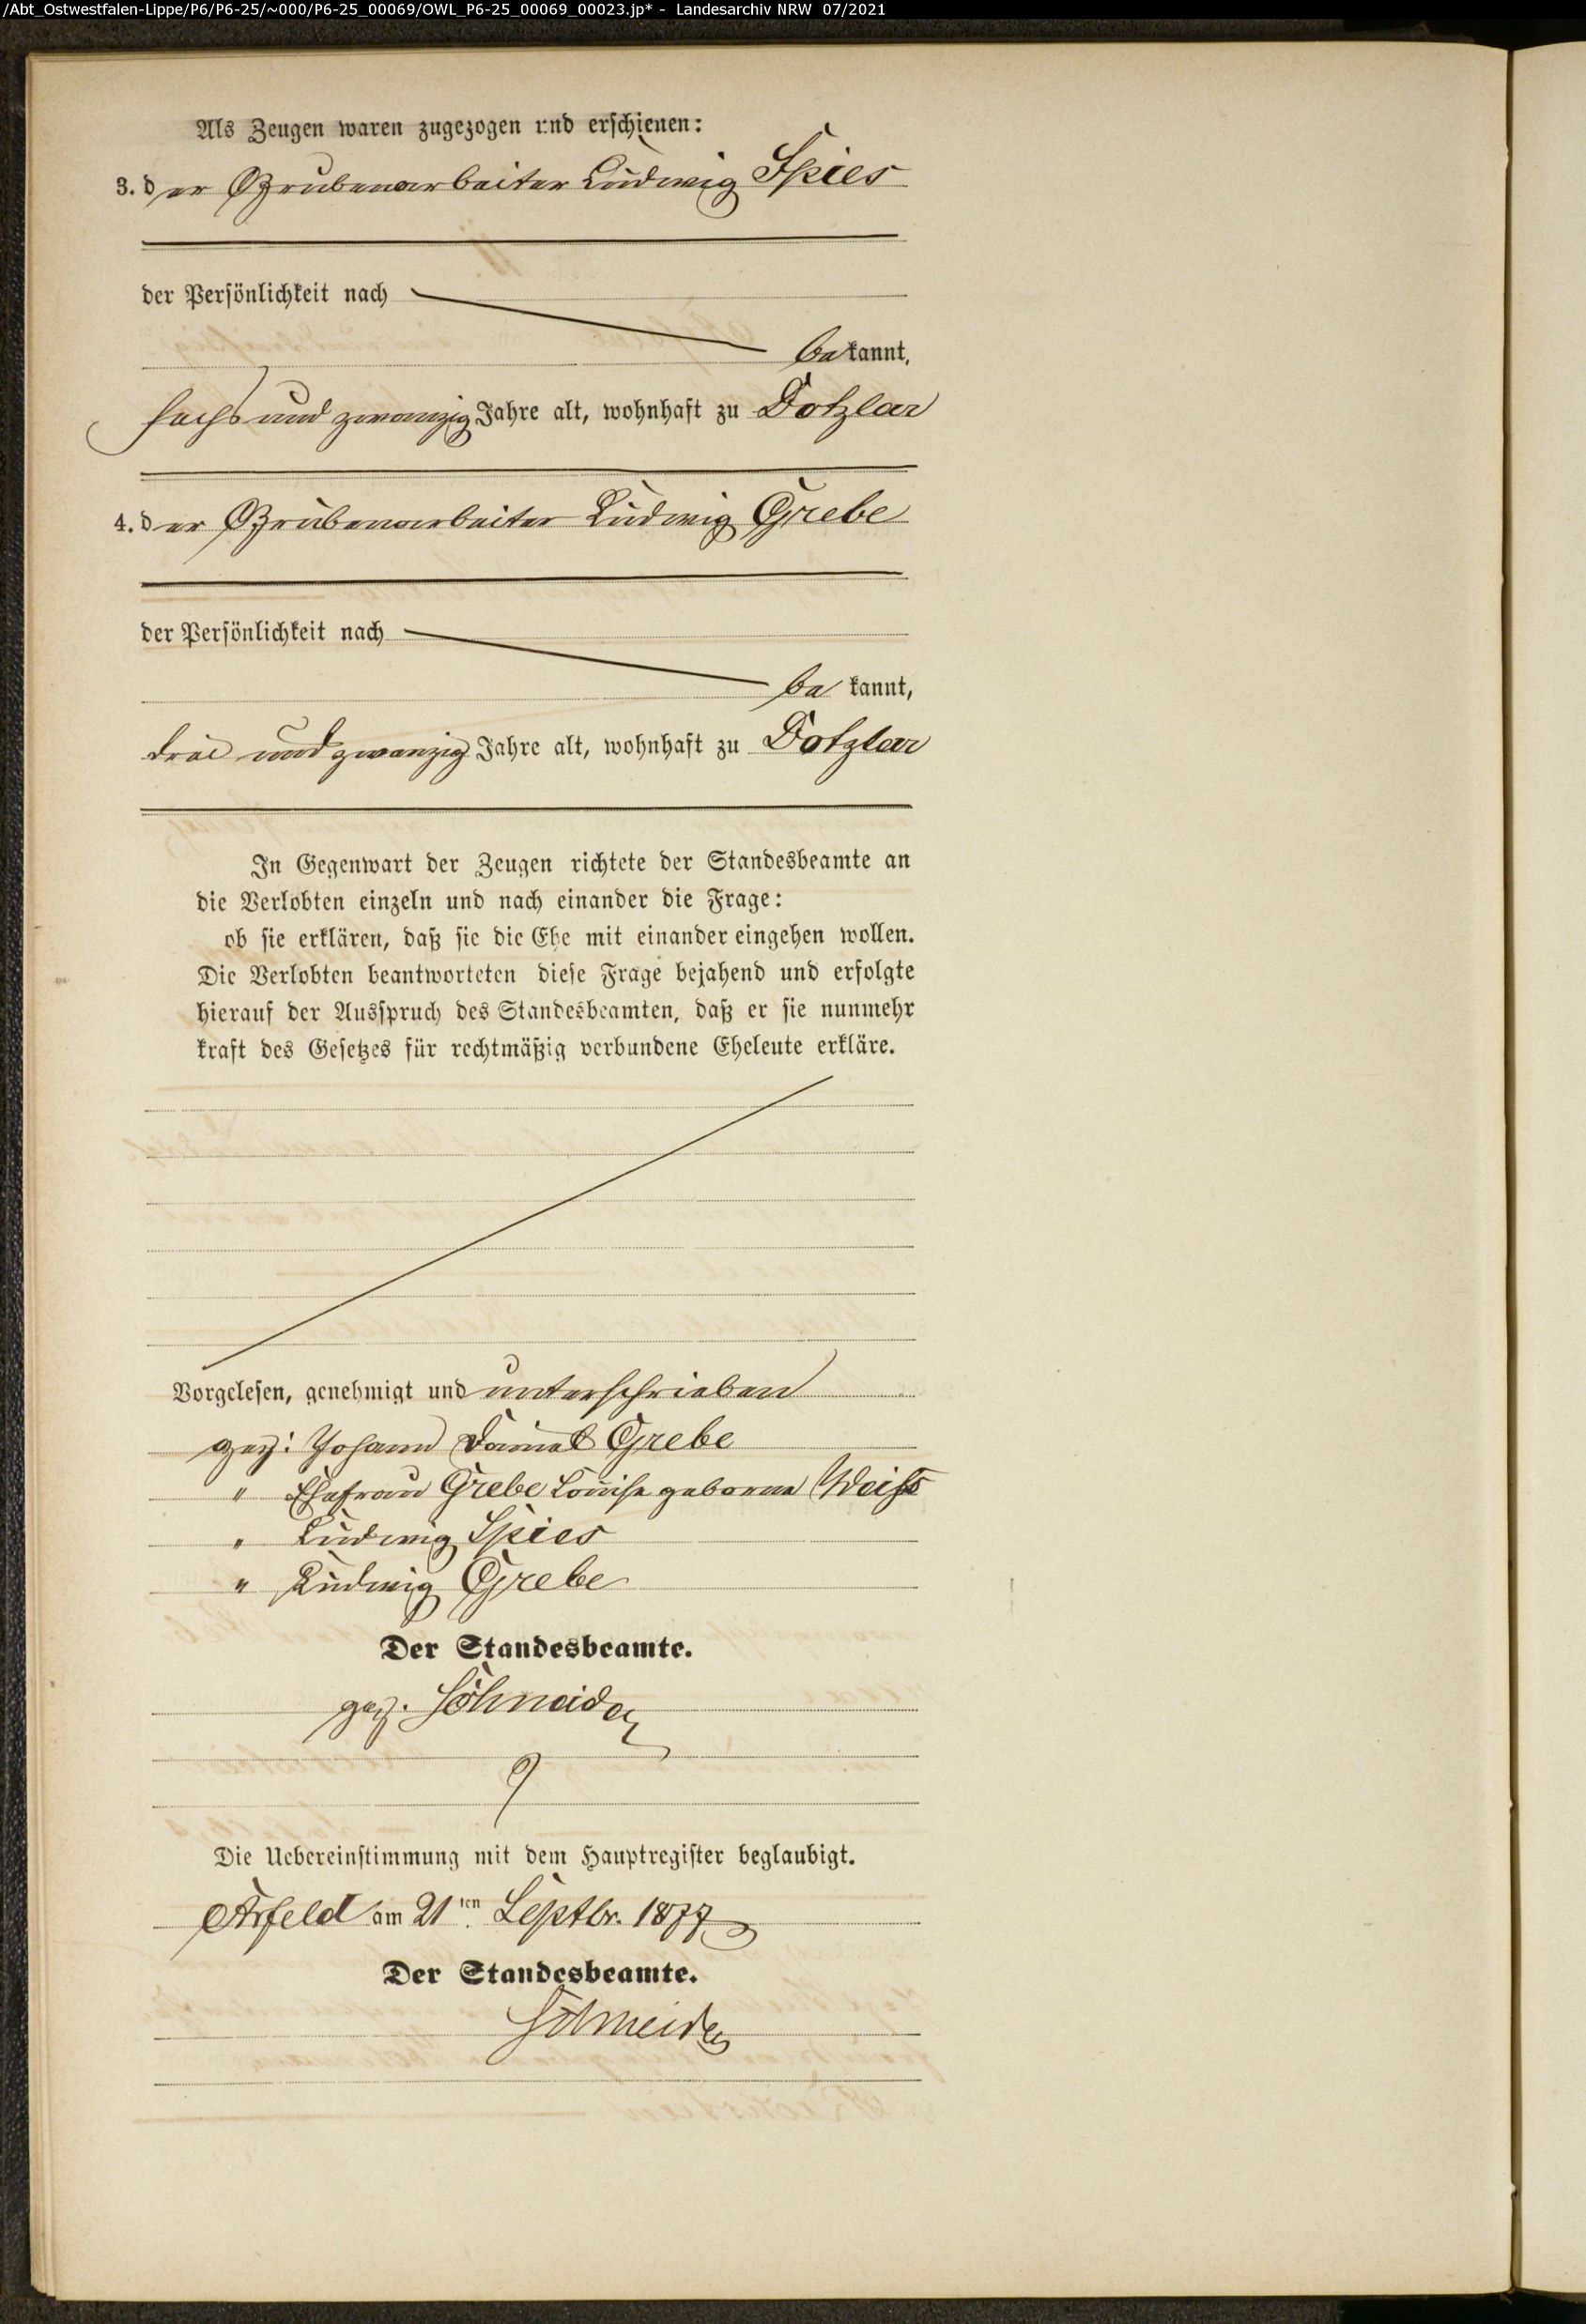 /Abt_Ostwestfalen-Lippe/P6/P6-25/~000/P6-25_00069/OWL_P6-25_00069_00023.jp* - Landesarchiv NRW 07/2021
Als Zeugen waren zugezogen und erschienen:
3. der Grubenarbeiter Ludwig Spies
der Persönlichkeit nach
bekannt,
sechs und zwanzig Jahre alt, wohnhaft zu Dotzlar
4. der Grubenarbeiter Ludwig Grebe
der Persönlichkeit nach
be kannt,
drei und zwanzig Jahre alt, wohnhaft zu Dotzlar
In Gegenwart der Zeugen richtete der Standesbeamte an
die Verlobten einzeln und nach einander die Frage:
ob sie erklären, daß sie die Ehe mit einander eingehen wollen.
Die Verlobten beantworteten diese Frage bejahend und erfolgte
hierauf der Ausspruch des Standesbeamten, daß er sie nunmehr
kraft des Gesetzes für rechtmäßig verbundene Eheleute erkläre.
Vorgelesen, genehmigt und unterschrieben
gez: Johann Daniel Grebe
" Ehefrau Grebe Louise geborne Weiss
" Ludwig Spies
" Ludwig Grebe
Der Standesbeamte.
gez. Schneider
Die Uebereinstimmung mit dem Hauptregister beglaubigt.
Arfeld am 21ten Septbr. 1877
Der Standesbeamte.
Schneider